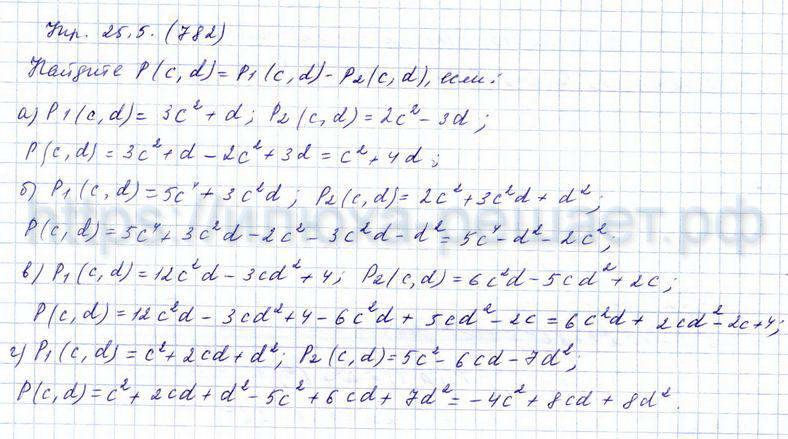 Упр. 25.5. (782)
Найдите P(c,d) = P₁(c,d) - P₂(c,d), если:
а) P₁(c,d) = 3c² + d; P₂(c,d) = 2c² - 3d;
P(c,d) = 3c² + d - 2c² + 3d = c² + 4d;
б) P₁(c,d) = 5c⁴ + 3c²d; P₂(c,d) = 2c² + 3c²d + d²;
P(c,d) = 5c⁴ + 3c²d - 2c² - 3c²d - d² = 5c⁴ - d² - 2c²;
https://илюха.решает.рф
в) P₁(c,d) = 12c²d - 3cd² + 4; P₂(c,d) = 6c²d - 5cd² + 2c;
P(c,d) = 12c²d - 3cd² + 4 - 6c²d + 5cd² - 2c = 6c²d + 2cd² - 2c + 4;
г) P₁(c,d) = c² + 2cd + d²; P₂(c,d) = 5c² - 6cd - 7d²;
P(c,d) = c² + 2cd + d² - 5c² + 6cd + 7d² = -4c² + 8cd + 8d².